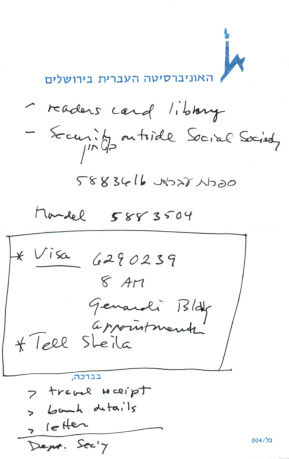 האוניברסיטה העברית בירושלים
- readers card library
- Security outside Social Society
בטחון
ספרות עברית 5883616
Mandel 5883504
* Visa 6290239
8 AM
Genardi Bldg
appointment
* Tell Sheila
בברכה,
> travel receipt
> bank details
> letter
Dept. Sec'y
כל/004